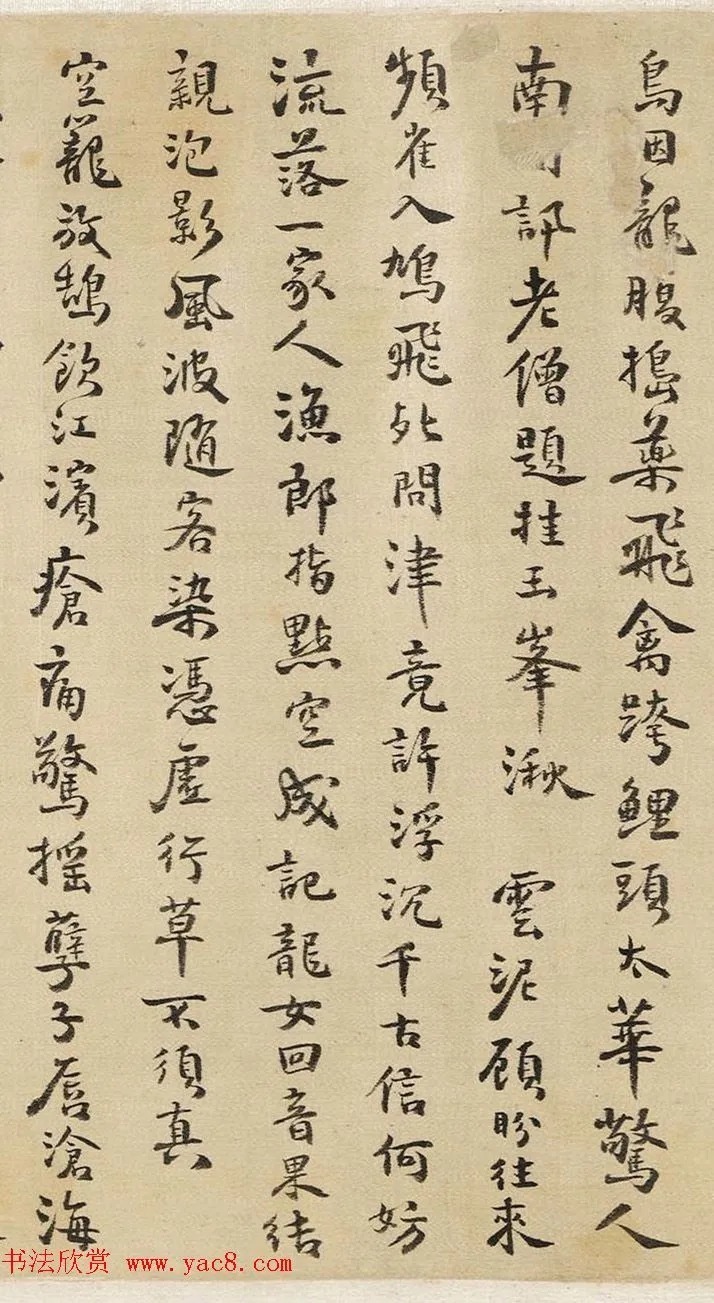 烏因龍腹搗藥飛禽跨鯉頭太華驚人
南訊老僧題挂玉峯湫 雲泥顧盼往來
頻雀入鳩飛北問津竟許浮沉千古信何妨
流落一家人漁郎指點空成記龍女回音果結
親泡影風波隨客染憑虛行草不須真
空籠放鵠飲江濱瘡痛驚摇孽子唇滄海
书法欣赏 www.yac8.com